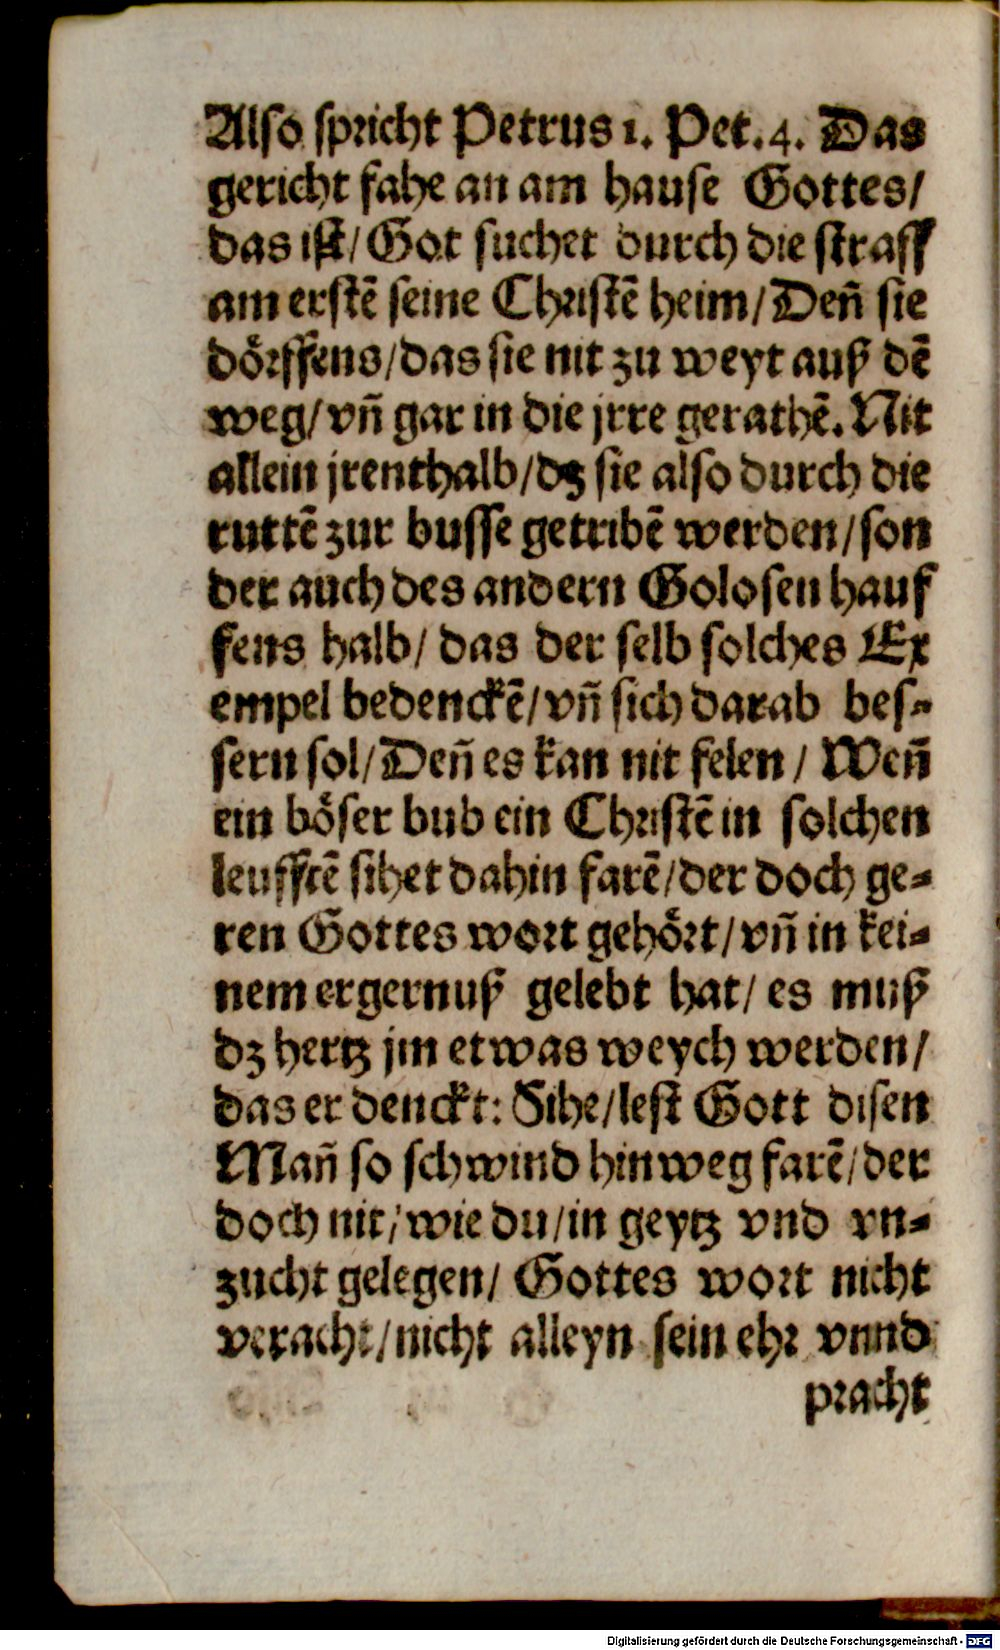 Also spricht Petrus 1. Pet. 4. Das
gericht fahe an am hause Gottes/
das ist/ Got suchet durch die straff
am erstē seine Christē heim/ Deñ sie
dörffens/ das sie nit zu weyt auß dē
weg/ vñ gar in die jrre gerathē. Nit
allein jrenthalb/ dz sie also durch die
ruttē zur busse getribē werden/ son
der auch des andern Golosen hauf
fens halb/ das der selb solches Ex
empel bedenckē/ vñ sich darab bes-
sern sol/ Deñ es kan nit felen/ Weñ
ein böser bub ein Christē in solchen
leufftē sihet dahin farē/ der doch ge-
ren Gottes wort gehört/ vñ in kei-
nem ergernuß gelebt hat/ es muß
dz hertz jm etwas weych werden/
das er denckt: Sihe/ lest Gott disen
Mañ so schwind hinweg farē/ der
doch nit/ wie du/ in geytz vnd vn-
zucht gelegen/ Gottes wort nicht
veracht/ nicht alleyn sein ehr vnnd
pracht
Digitalisierung gefördert durch die Deutsche Forschungsgemeinschaft - DFG